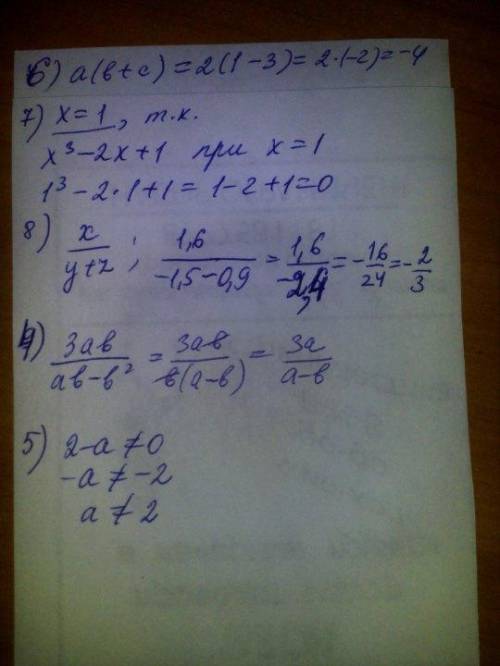 6) a(b+c) = 2(1-3) = 2·(-2) = -4
7) x=1, т.к.
x³-2x+1 при x=1
1³-2·1+1 = 1-2+1=0
8) x/(y+z); 1,6/(-1,5-0,9) = 1,6/(-2,4) = -16/24 = -2/3
4) 3ab/(ab-b²) = 3ab/(b(a-b)) = 3a/(a-b)
5) 2-a≠0
-a≠-2
a≠2